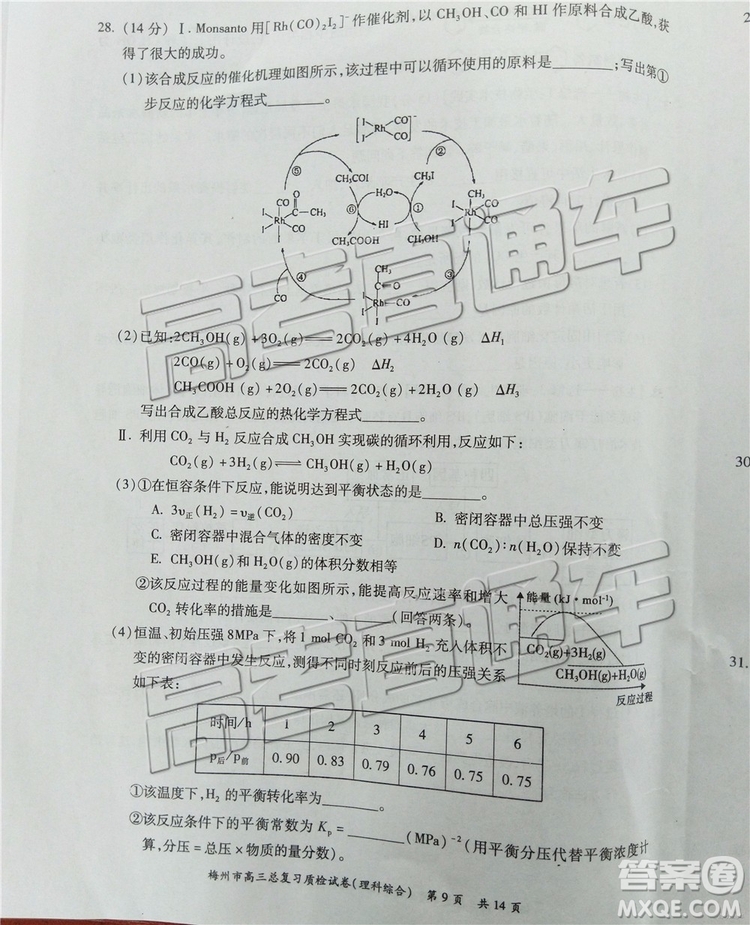 28. (14分) Ⅰ. Monsanto 用[Rh(CO)₂I₂]⁻作催化剂,以 CH₃OH、CO 和 HI 作原料合成乙酸,获
得了很大的成功。
(1)该合成反应的催化机理如图所示,该过程中可以循环使用的原料是________;写出第①
步反应的化学方程式________。
I
I
Rh
CO
CO
⁻
⑤
②
CH₃COI
CH₃I
H₂O
⑥
①
HI
CH₃COOH
CH₃OH
CO
O
I
Rh
CH₃
I
CO
CH₃
I
Rh
CO
CO
④
③
CO
CH₃
C
O
I
Rh
CO
I
(2)已知:2CH₃OH(g)+3O₂(g)═══2CO₂(g)+4H₂O(g) ΔH₁
2CO(g)+O₂(g)═══2CO₂(g) ΔH₂
CH₃COOH(g)+2O₂(g)═══2CO₂(g)+2H₂O(g) ΔH₃
写出合成乙酸总反应的热化学方程式________。
Ⅱ. 利用 CO₂ 与 H₂ 反应合成 CH₃OH 实现碳的循环利用,反应如下:
CO₂(g)+3H₂(g)⇌CH₃OH(g)+H₂O(g)
(3)①在恒容条件下反应,能说明达到平衡状态的是________。
A. 3υ正(H₂)=υ逆(CO₂) B. 密闭容器中总压强不变
C. 密闭容器中混合气体的密度不变 D. n(CO₂):n(H₂O)保持不变
E. CH₃OH(g)和H₂O(g)的体积分数相等
②该反应过程的能量变化如图所示,能提高反应速率和增大
CO₂ 转化率的措施是________、________(回答两条)。
能量(kJ·mol⁻¹)
CO₂(g)+3H₂(g)
CH₃OH(g)+H₂O(g)
反应过程
(4)恒温、初始压强8MPa下,将 1 mol CO₂ 和 3 mol H₂ 充入体积不
变的密闭容器中发生反应,测得不同时刻反应前后的压强关系
如下表:
时间/h 1 2 3 4 5 6
p后/p前 0.90 0.83 0.79 0.76 0.75 0.75
①该温度下,H₂ 的平衡转化率为________。
②该反应条件下的平衡常数为 Kp=________(MPa)⁻²(用平衡分压代替平衡浓度计
算,分压=总压×物质的量分数)。
梅州市高三总复习质检试卷(理科综合) 第9页 共14页
2
30
31.
高考直通车
高考直通车
答案圈
MXQE.COM